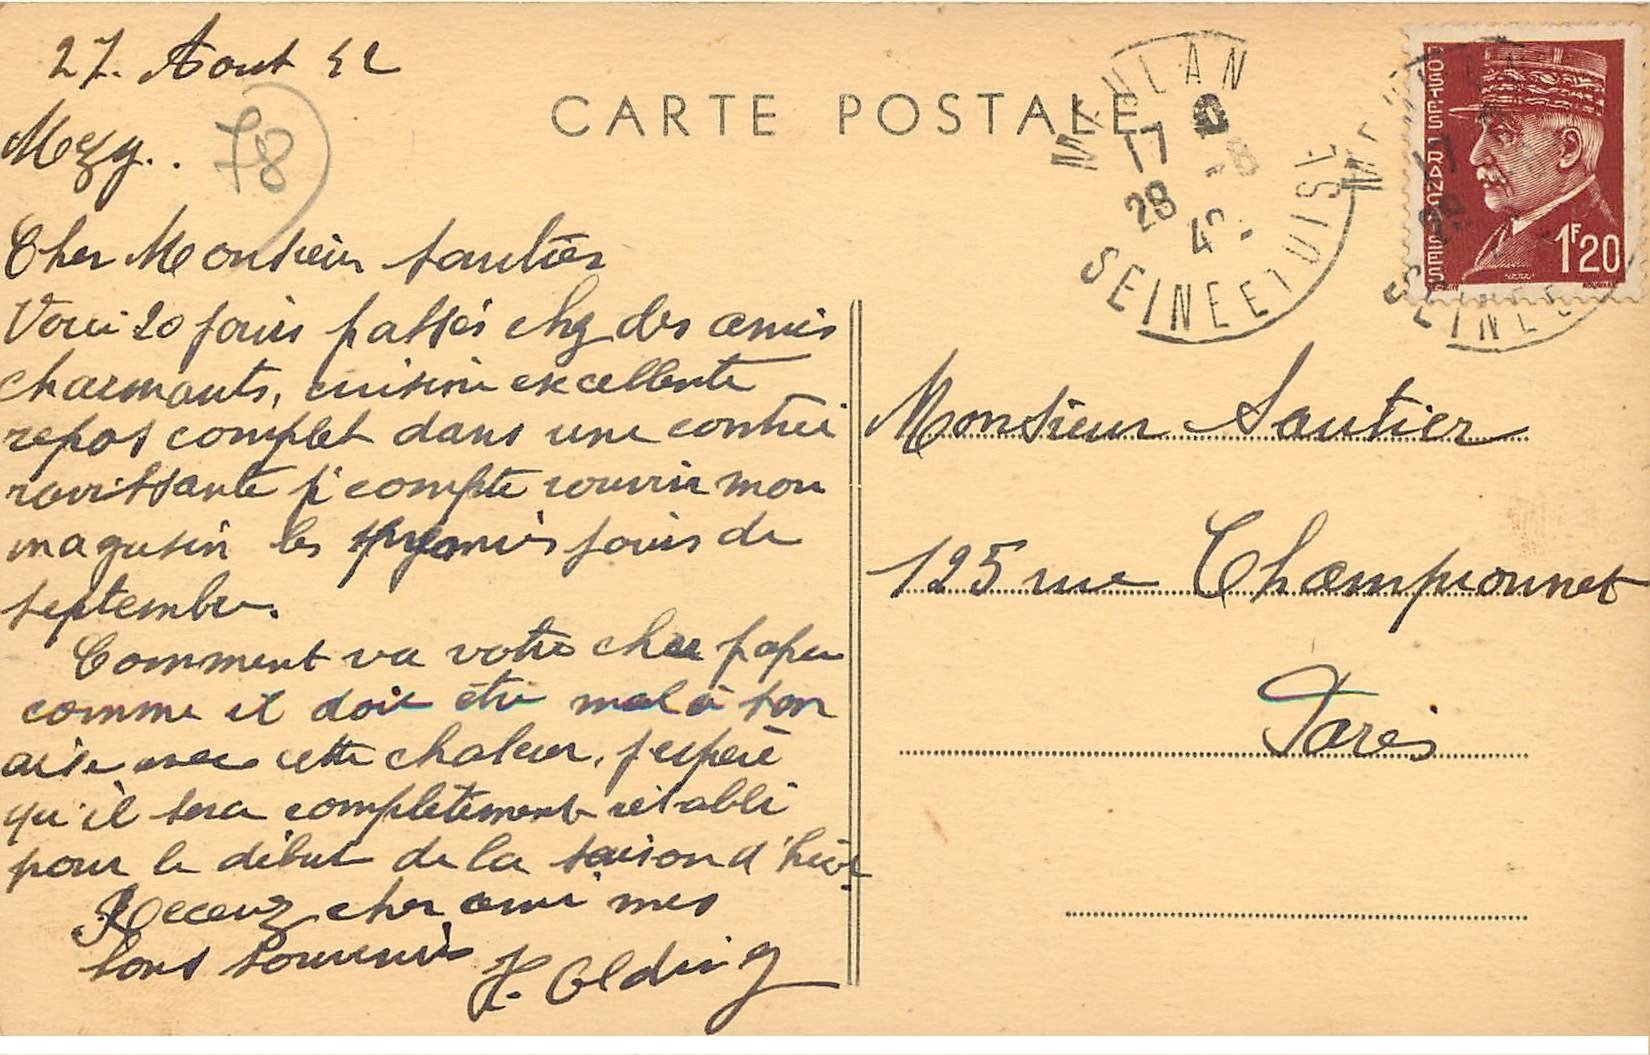 27. Aout 42
Mezy..
78
CARTE POSTALE
MEULAN
17
28 -8
4
SEINE ET OISE
POSTES FRANÇAISES
1F20
17
28
SEINE
Cher Monsieur Sautier
Voici 20 jours passés chez des amis
charmants, cuisine excellente
repos complet dans une contrée
ravissante je compte rouvrir mon
magasin les premiers jours de
septembre.
Comment va votre cher papa
comme il doit être mal à son
aise avec cette chaleur, j'espère
qu'il sera complètement rétabli
pour le début de la saison d'hiver
Recevez cher ami mes
bons souvenirs
H. Olding
Monsieur Sautier
125 rue Championnet
Paris